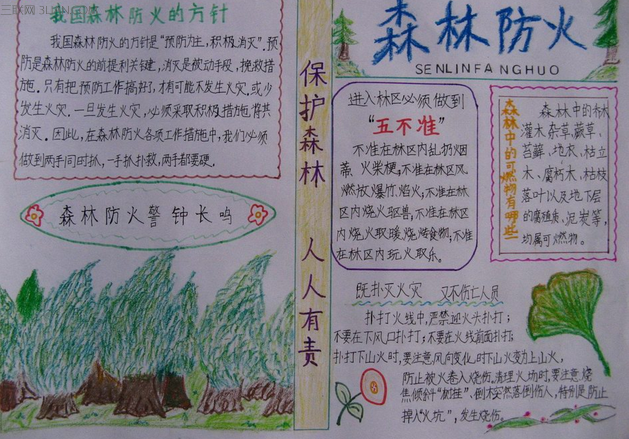 三联网 3LIAN.COM
我国森林防火的方针
我国森林防火的方针是"预防为主，积极消灭"。预
防是森林防火的前提和关键，消灭是被动手段，挽救措
施。只有把预防工作搞好了，才有可能不发生火灾或少
发生火灾。一旦发生火灾，必须采取积极措施将其
消灭。因此，在森林防火各项工作措施中，我们必须
做到两手同时抓，一手抓扑救，两手都要硬。
森林防火警钟长鸣
保护森林 人人有责
森林防火
SENLINFANGHUO
进入林区必须做到
"五不准"
不准在林区内乱扔烟
蒂、火柴梗，不准在林区
燃放爆竹、焰火；不准在林
区内烧火驱兽；不准在林区
内烧火取暖、烧烤食物；不准
在林区内玩火取乐。
森林中的可燃物有哪些
森林中的林
灌木杂草、蕨草、
苔藓、地衣、枯立
木、腐朽木、枯枝
落叶以及地下层
的腐殖质、泥炭等，
均属可燃物。
既扑灭火灾 又不伤亡人员
扑打火线中，严禁迎火头扑打；
不要在下风口扑打；不要在火线前面扑打；
扑打下山火时，要注意风向变化，时下山火变为上山火，
防止被火卷入烧伤，清理火场时，要注意烧
焦倾斜"树挂"、倒木突然落倒伤人，特别是防止
掉入"火坑"，发生烧伤。